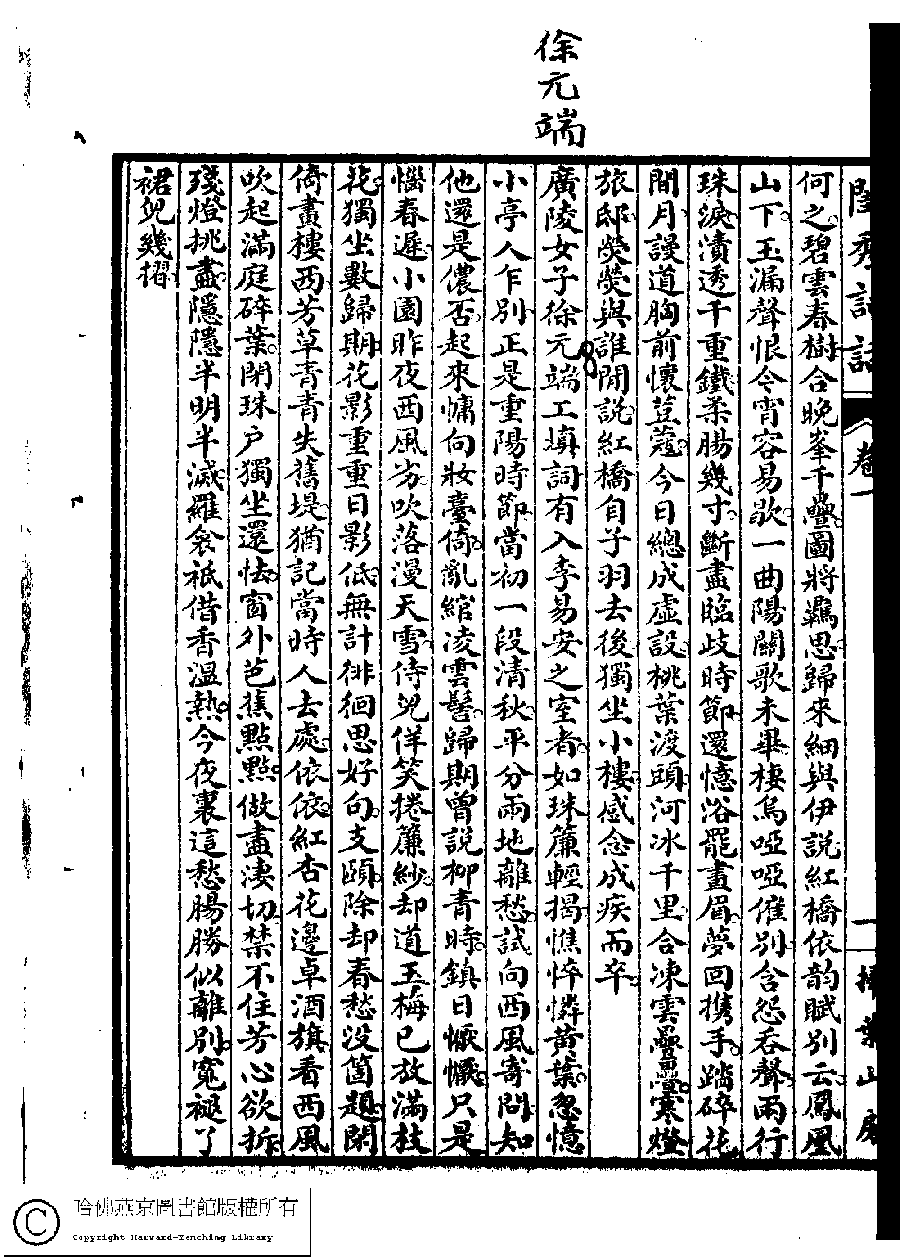 徐元端
閨秀詞話
卷一
一
掃葉山房
何之碧雲春樹合晚峯千疊圖將羈思歸來細與伊說紅橋依韵賦別云鳳凰
山下玉漏聲恨今宵容易歇一曲陽關歌未畢棲烏啞啞催別含怨吞聲兩行
珠淚漬透千重鐵柔腸幾寸斷盡臨歧時節還憶浴罷畫眉夢回携手踏碎花
間月謾道胸前懷荳蔻今日總成虛設桃葉渡頭河冰千里合凍雲疊疊寒燈
旅邸熒熒與誰閒說紅橋自子羽去後獨坐小樓感念成疾而卒
廣陵女子徐元端工填詞有入李易安之室者如珠簾輕揭憔悴憐黃葉忽憶
小亭人乍別正是重陽時節當初一段清秋平分兩地離愁試向西風寄問知
他還是儂否起來慵向妝臺倚亂綰凌雲髻歸期曾說柳青時鎮日懨懨只是
惱春遲小園昨夜西風劣吹落漫天雪侍兒佯笑捲簾紗却道玉梅已放滿枝
花獨坐數歸期花影重重日影低無計徘徊思好句支頤除却春愁沒箇題閒
倚畫樓西芳草青青失舊堤猶記當時人去處依依紅杏花邊卓酒旗看西風
吹起滿庭碎葉閉珠戶獨坐還怯窗外芭蕉點點做盡淒切禁不住芳心欲折
殘燈挑盡隱隱半明半滅羅衾祇借香溫熱今夜裏這愁腸勝似離別寬褪了
裙兒幾褶
哈佛燕京圖書館版權所有
Copyright Harvard-Yenching Library